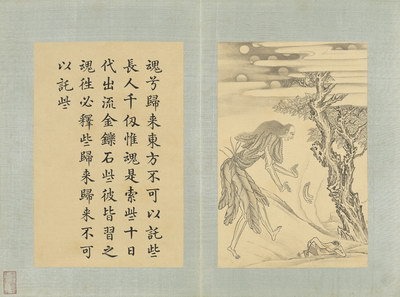 魂兮歸来東方不可以託些
長人千仞惟魂是索些十日
代出流金鑠石些彼皆習之
魂徃必釋些歸来歸来不可
以託些